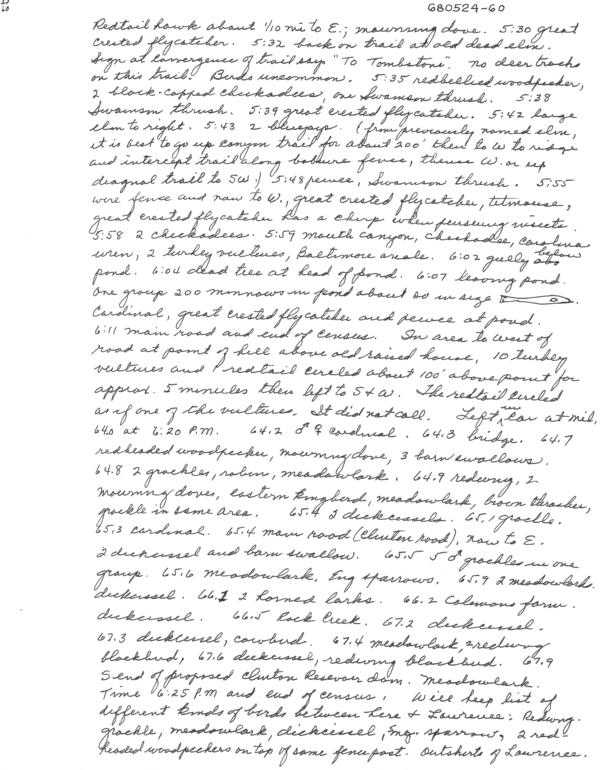 680524-60
Redtail hawk about 1/10 mi to E.; mourning dove. 5:30 great
crested flycatcher. 5:32 back on trail at old dead elm.
Sign at convergence of trail say "To Tombstone". No deer tracks
on this trail. Birds uncommon. 5:35 redbellied woodpecker,
2 black-capped chickadees, one Swamson thrush. 5:38
Swainson thrush. 5:39 great crested flycatcher. 5:42 large
elm to right. 5:43 2 bluejays. (from previously named elm,
it is best to go up canyon trail for about 200' then to W to ridge
and intercept trail along fence, thence W. or up
diagnal trail to SW.) 5:48 pewee, Swainson thrush. 5:55
wire fence and now to W., great crested flycatcher, titmouse,
great crested flycatcher has a chirp when persueing insects.
5:58 2 chickadees. 5:59 mouth canyon, Chickadee, Carolina
wren, 2 turkey vultures, Baltimore oriole. 6:02 gully below
pond. 6:04 dead tree at head of pond. 6:07 leaving pond.
One group 200 minnows in pond about so in size
Cardinal, great crested flycatcher and pewee at pond.
6:11 main road and end of census. In area to west of
road at point of hill above old raised house, 10 turkey
vultures and 1 redtail circled about 100' above point for
approx. 5 minutes then left to S & W. The redtail circled
as if one of the vultures. It did not call. Left in car at mil.
64.0 at 6:20 P.M. 64.2 ♂ ♀ cardinal. 64.3 bridge. 64.7
redheaded woodpecker, mourning dove, 3 barn swallows.
64.8 2 grackles, robin, meadowlark. 64.9 redwing, 2
mourning doves, eastern kingbird, meadowlark, brown thrasher,
grackle in same area. 65.4 2 dickcissels. 65.1 grackle.
65.3 cardinal. 65.4 main road (Clinton road), now to E.
2 dickcissel and barn swallow. 65.5 5 ♂ grackles in one
group. 65.6 meadowlark, Eng sparrows. 65.9 2 meadowlarks.
dickcissel. 66.1 2 horned larks. 66.2 Colemans farm.
dickcissel. 66.5 Rock Creek. 67.2 dickcissel.
67.3 dickcissel, cowbird. 67.4 meadowlark, 2 redwing
blackbird, 67.6 dickcissel, redwing blackbird. 67.9
S end of proposed Clinton Resevoir dam. Meadowlark.
Time 6:25 P.M and end of census. Will keep list of
different kinds of birds between here & Lawrence: Redwing.
grackle, meadowlark, dickcissel, Eng. sparrow, 2 red-
headed woodpeckers on top of same fence post. Outskirts of Lawrence.